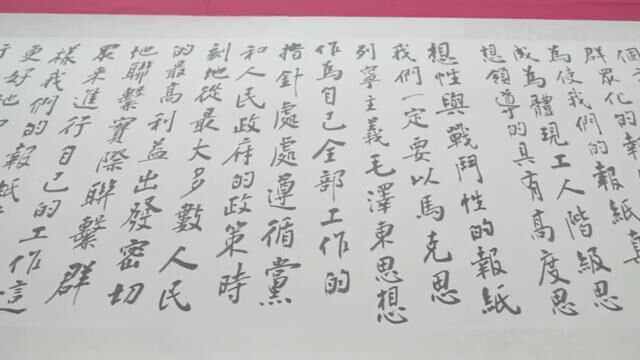 群眾化的報紙
為使我們的報紙
成為體現工人階級思
想領導的具有高度思
想性與戰鬥性的報紙
我們一定要以馬克思
列寧主義毛澤東思想
作為自己全部工作的
指針處處遵循黨
和人民政府的政策時
刻地從最大多數人民
的最高利益出發密切
地聯繫實際聯繫群
眾來進行自己的工作這
樣我們的報紙
更好地